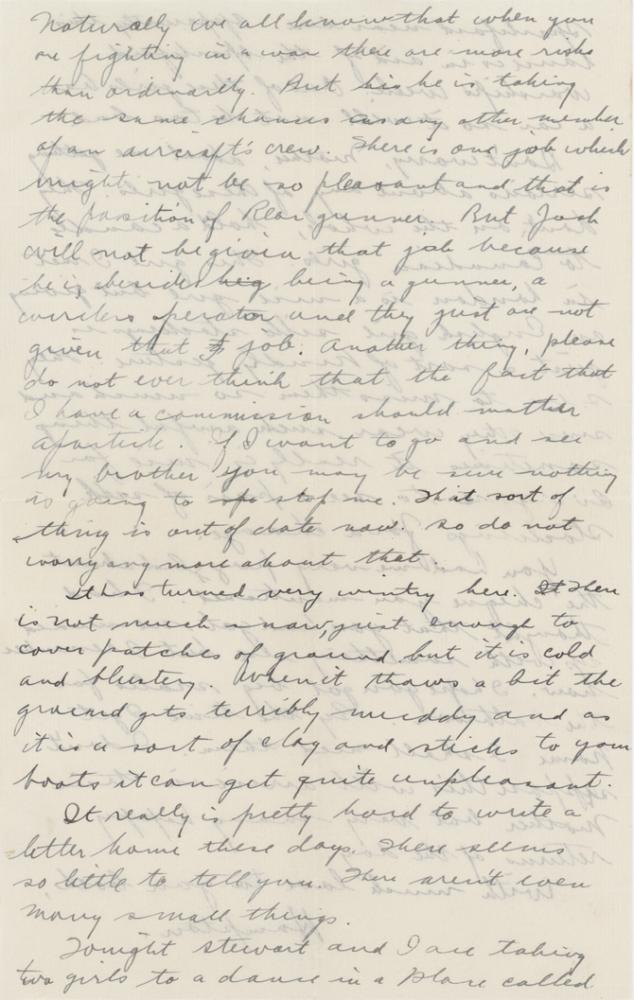 Naturally we all know that when you
are fighting in a war there are more risks
than ordinarily. But his he is taking
the same chances as any other member
of an aircraft's crew. There is one job which
might not be so pleasant and that is
the position of Rear gunner. But Josh
will not be given that job because
he is, besides being a gunner, a
wireless operator and they just are not
given that job. Another thing, please
do not ever think that the fact that
I have a commission should matter
a particle. If I want to go and see
my brother you may be sure nothing
is going to stop me. That sort of
thing is out of date now. So do not
worry any more about that.
It has turned very wintry here. It There
is not much snow, just enough to
cover patches of ground but it is cold
and blustery. When it thaws a bit the
ground gets terribly muddy and as
it is a sort of clay and sticks to your
boots it can get quite unpleasant.
It really is pretty hard to write a
letter home these days. There seems
so little to tell you. There aren't even
many small things.
Tonight Stewart and I are taking
two girls to a dance in a place called